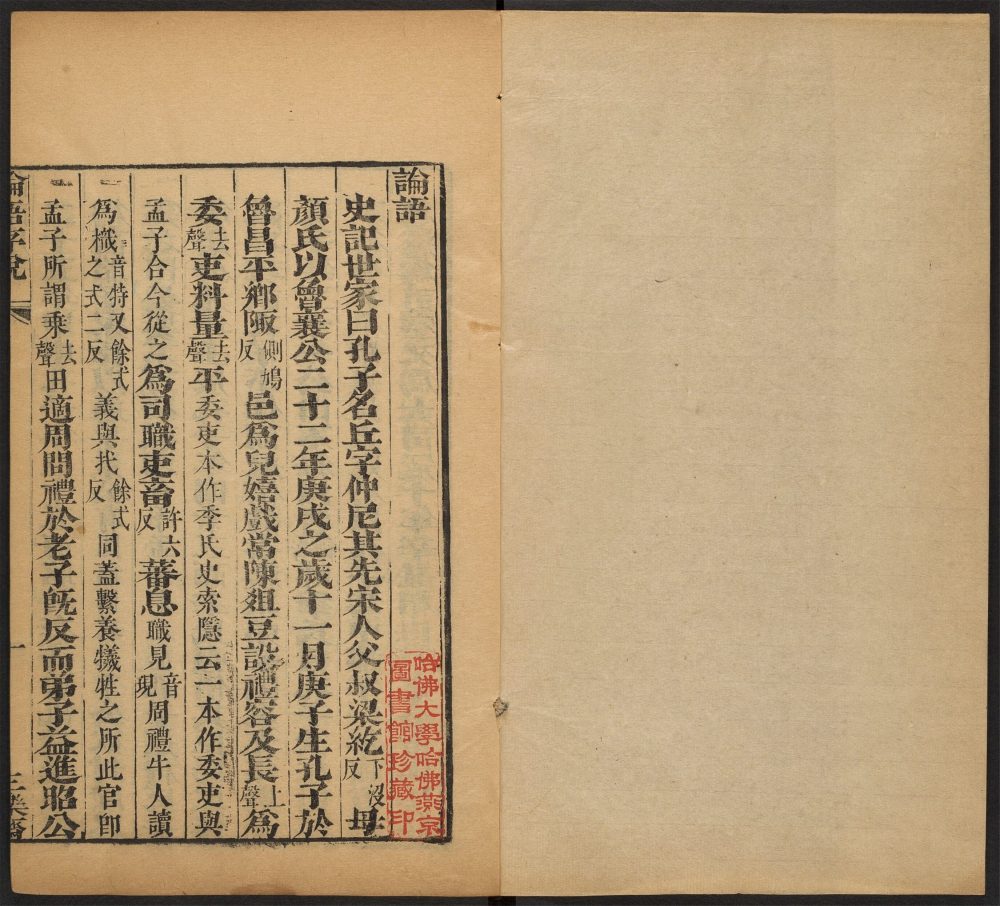 論語
史記世家曰孔子名丘字仲尼其先宋人父叔梁紇下沒反母
顏氏以魯襄公二十二年庚戌之歲十一月庚子生孔子於
魯昌平鄉陬側鳩反邑爲兒嬉戲常陳俎豆設禮容及長上聲爲
委去聲吏料量去聲平委吏本作季氏史索隱云一本作委吏與
孟子合今從之爲司職吏畜許六反蕃息職見音現周禮牛人讀
爲樴音特又餘式之式二反義與杙餘式反同蓋繫養犧牲之所此官即
孟子所謂乘去聲田適周問禮於老子旣反而弟子益進昭公
論語序說
一
哈佛大學哈佛燕京
圖書館珍藏印